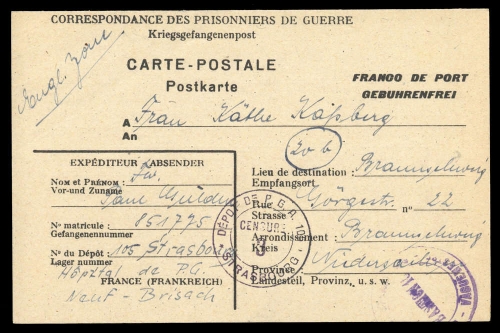 CORRESPONDANCE DES PRISONNIERS DE GUERRE
Kriegsgefangenenpost
Engl. Zone
CARTE-POSTALE
Postkarte
FRANCO DE PORT
GEBUHRENFREI
A
An
Frau Käthe
20b
EXPÉDITEUR / ABSENDER
NOM ET PRÉNOM :
Vor-und Zuname
Paul
No matricule : 851775
Gefangenennummer
No du Dépôt : 105 Strasbourg
Lager nummer
Hôpital de P.G.
Neuf-Brisach
FRANCE (FRANKREICH)
Lieu de destination : Braunschweig
Empfangsort.
Rue
Strasse
Görgestr. no 22
Arrondissement : Braunschweig
Kreis
Province :
Landesteil, Provinz, u. s. w.
DÉPÔT DE P.G.A. 105
CENSURE
3
STRASBOURG